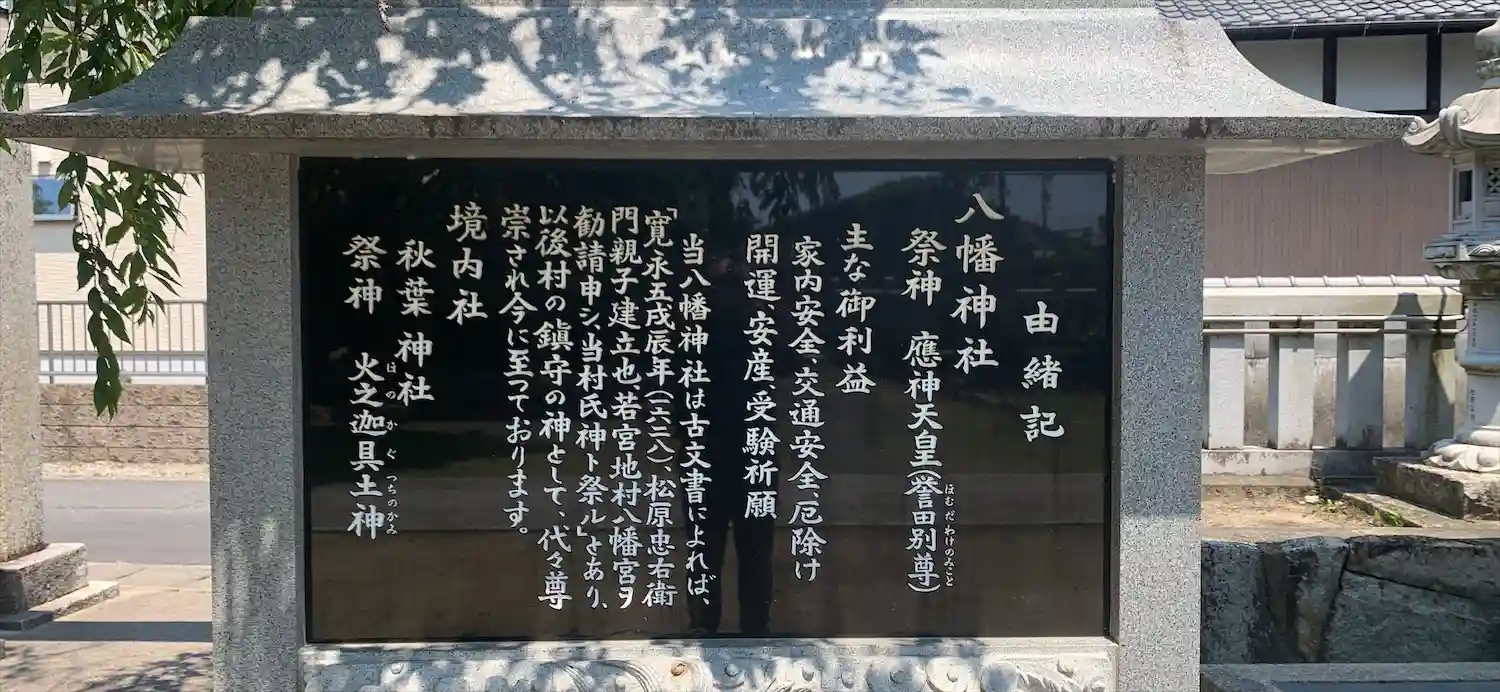 由緒記
八幡神社
祭神 應神天皇(誉田別尊)
ほむだわけのみこと
主な御利益
家内安全、交通安全、厄除け
開運、安産、受験祈願
当八幡神社は古文書によれば、
「寛永五戌辰年(一六二八)、松原忠右衛
門親子建立也、若宮地村八幡宮ヲ
勧請申シ、当村氏神ト祭ル」とあり、
以後村の鎮守の神として、代々尊
崇され今に至っております。
境内社
秋葉神社
祭神 火之迦具土神
ほのかぐつちのかみ